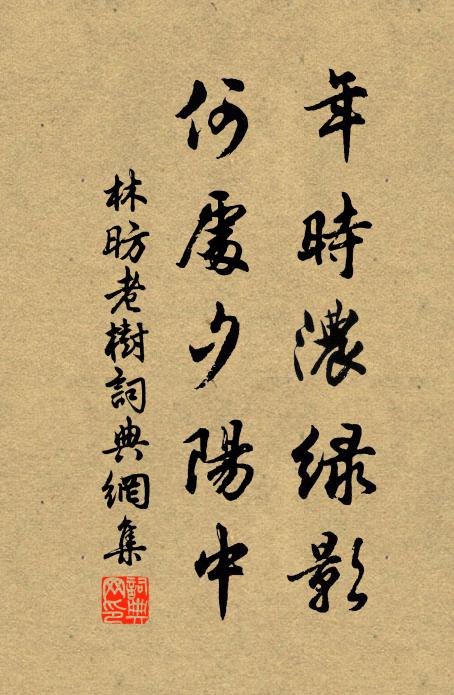 年時濃緑影
何處夕陽中
林昉老樹詞典網集
詞典
网印